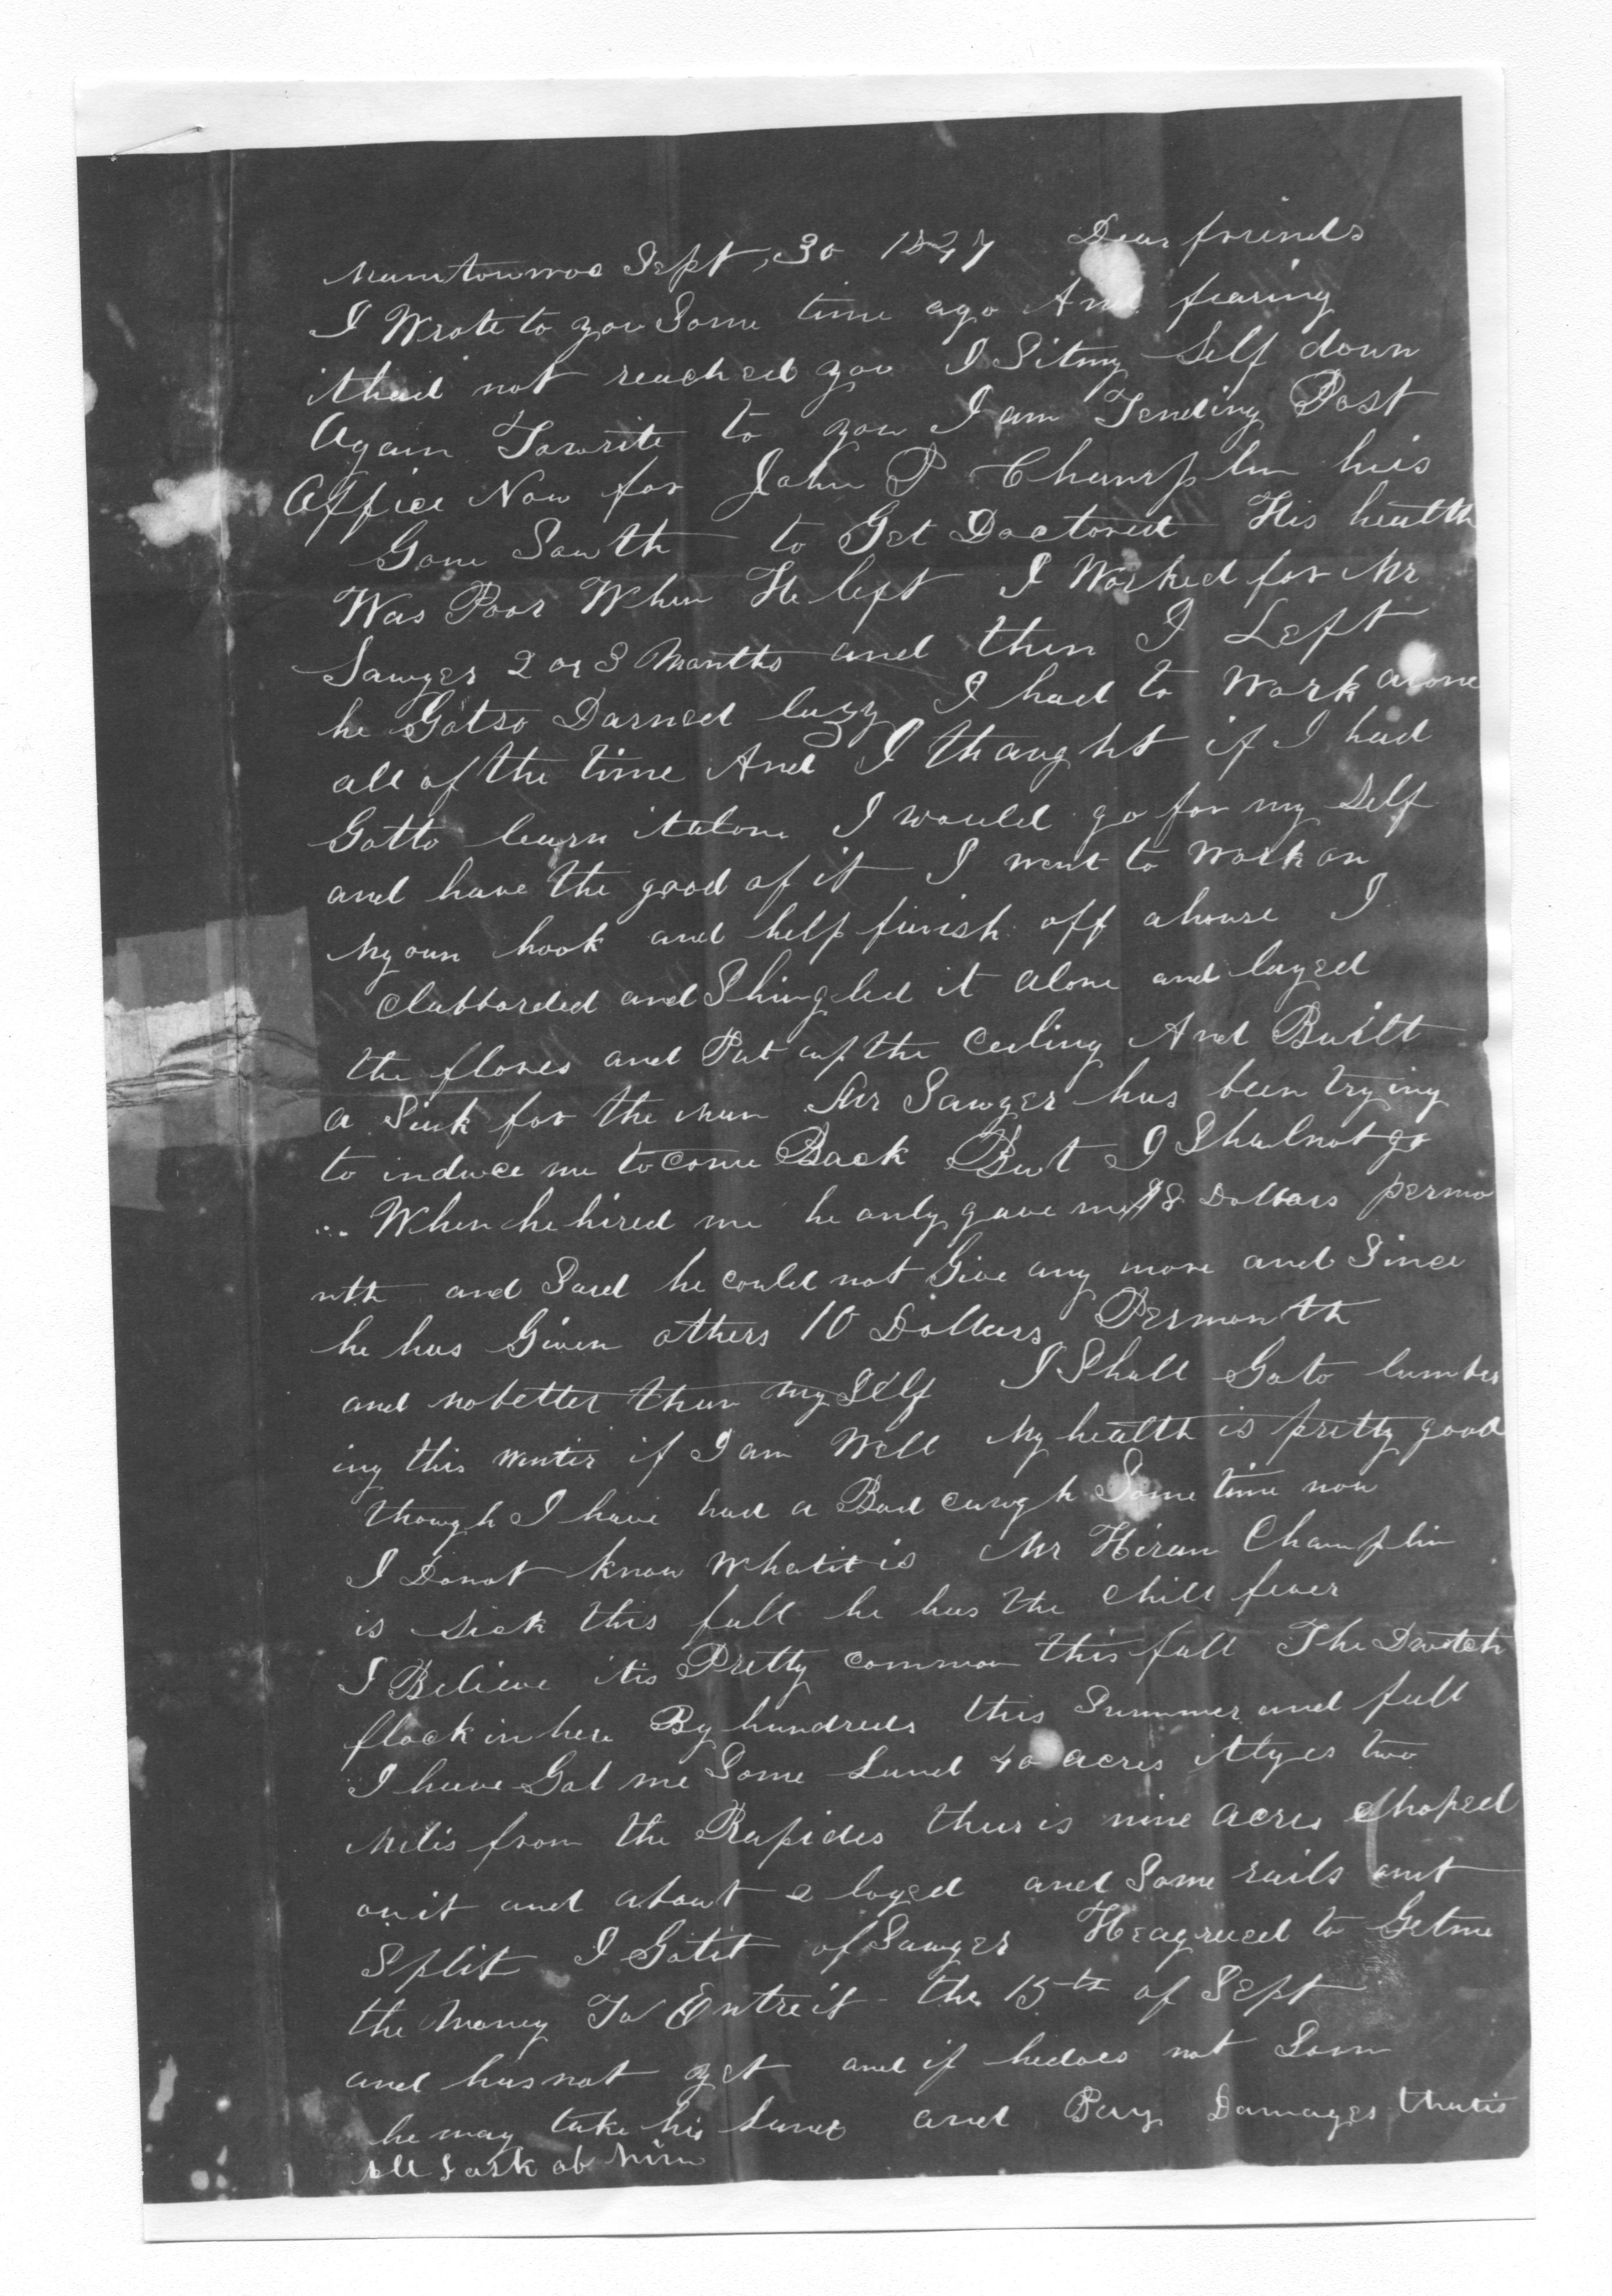 Manitowoc Sept, 30 1847 Dear friends
I Wrote to you Some time ago And fearing
ithad not reached you I Sitmy Self down
Again Towrite to you I am Tending Post
Office Now for John P Champlin his
Gone South to Get Doctored His health
Was Poor When He left I Worked for Mr
Sawyer 2 or 3 Months and then I Left
he Gotso Darned lazy I had to Work alone
all of the time And I thaught if I had
Gotto learn italone I would go for my Self
and have the good of it I went to work on
My oun hook and help finish off ahouse I
Clabborded and Shingled it alone and layed
the flores and Put up the Ceiling And Built
a Sink for the man Mr Sawyer has been trying
to induce me tocome Back But I Shalnot go
When he hired me he only gave me 8 Dollars permo
nth and Said he could not Give any more and Since
he has Given others 10 Dollars Permonth
and nobetter than my Self I Shall Goto lumber
ing this winter if I am Well My health is pretty good
though I have had a Bad caugh Some time now
I Donot know Whatit is Mr Hiram Champlin
is sick this fall he has the chill fever
I Believe itis Pretty common this fall The Dwtch
flock in here By hundreds this Summer and fall
I have Got me Some Land 40 acres itlyes two
Miles from the Rapides thearis nine acres Choped
onit and about 2 loged and Some rails
Split I Gotit of Sawyer Heagreed to Getme
the Money To Entreit the 15th of Sept
and hasnot yet and if hedoes not Soon
he may take his Land and Pay Damages thatis
All I ask of him